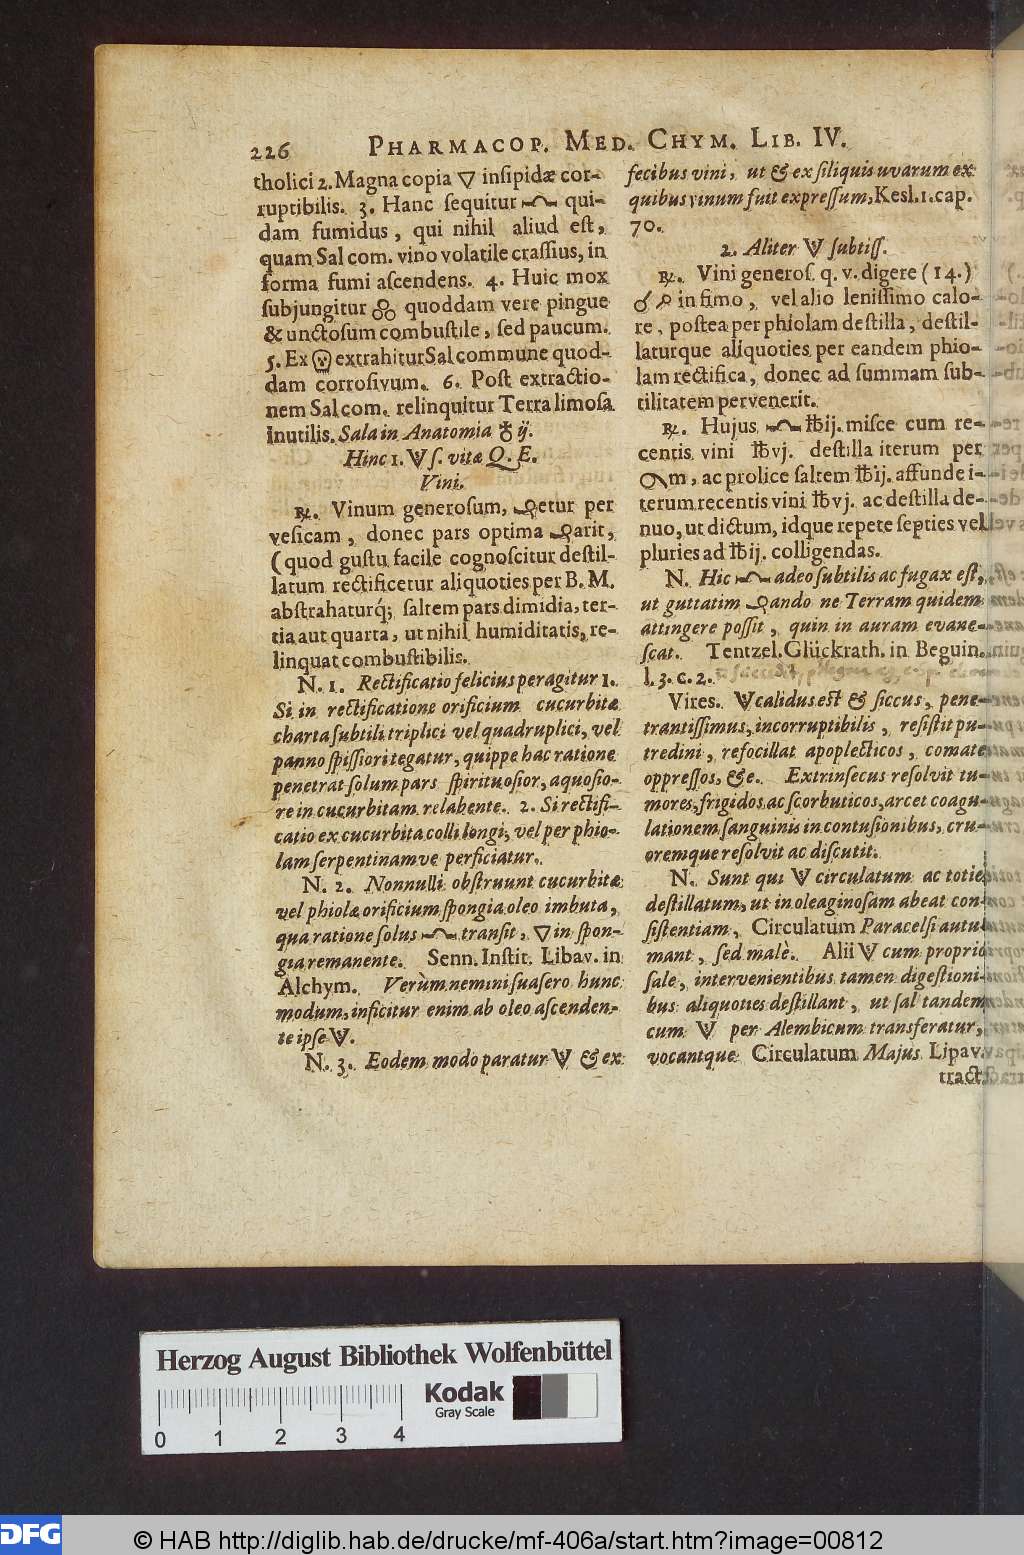 226 PHARMACOP. MED. CHYM. LIB. IV.
tholici 2. Magna copia 🜄 insipidæ cor-
ruptibilis. 3. Hanc sequitur qui-
dam fumidus, qui nihil aliud est,
quam Sal com. vino volatile crassius, in
forma fumi ascendens. 4. Huic mox
subjungitur quoddam vere pingue
& unctosum combustile, sed paucum.
5. Ex extrahitur Sal commune quod-
dam corrosivum. 6. Post extractio-
nem Sal com. relinquitur Terra limosa
inutilis. Sala in Anatomia ♁ ij.
Hinc 1. s. vitæ Q. E.
Vini.
℞. Vinum generosum, etur per
vesicam, donec pars optima arit,
(quod gustu facile cognoscitur destil-
latum rectificetur aliquoties per B. M.
abstrahaturq́; saltem pars dimidia, ter-
tia aut quarta, ut nihil humiditatis, re-
linquat combustibilis.
N. 1. Rectificatio felicius peragitur 1.
Si in rectificatione orificium cucurbitæ
charta subtili triplici vel quadruplici, vel
panno spissiori tegatur, quippe hac ratione
penetrat solum pars spirituosior, aquosio-
re in cucurbitam relabente. 2. Si rectifi-
catio ex cucurbita colli longi, vel per phio-
lam serpentinamve perficiatur.
N. 2. Nonnulli obstruunt cucurbitæ
vel phiolæ orificium spongia oleo imbuta,
qua ratione solus transit, 🜄 in spon-
gia remanente. Senn. Instit. Libav. in
Alchym. Verùm nemini suasero hunc
modum, inficitur enim ab oleo ascenden-
te ipse.
N. 3. Eodem modo paratur & ex
fecibus vini, ut & ex siliquis uvarum ex
quibus vinum fuit expressum, Kesl. 1. cap.
70.
2. Aliter subtiss.
℞. Vini generos. q. v. digere (14.)
in fimo, vel alio lenissimo calo-
re, postea per phiolam destilla, destil-
laturque aliquoties per eandem phio-
lam rectifica, donec ad summam sub-
tilitatem pervenerit.
℞. Hujus ℔ij. misce cum re-
centis vini ℔vj. destilla iterum per
m, ac prolice saltem ℔ij. affunde i-
terum recentis vini ℔vj. ac destilla de-
nuo, ut dictum, idque repete septies vel
pluries ad ℔ij. colligendas.
N. Hic adeo subtilis ac fugax est,
ut guttatim ando ne Terram quidem
attingere possit, quin in auram evane-
scat. Tentzel. Glückrath. in Beguin.
l. 3. c. 2.
Vires. calidus est & siccus, pene-
trantissimus, incorruptibilis, resistit pu-
tredini, refocillat apoplecticos, comate
oppressos, &c. Extrinsecus resolvit tu-
mores, frigidos ac scorbuticos, arcet coagu-
lationem sanguinis in contusionibus, cru-
oremque resolvit ac discutit.
N. Sunt qui circulatum ac toties
destillatum, ut in oleaginosam abeat con-
sistentiam, Circulatum Paracelsi autu-
mant, sed malè. Alii cum proprio
sale, intervenientibus tamen digestioni-
bus aliquoties destillant, ut sal tandem
cum per Alembicum transferatur,
vocantque Circulatum Majus Lipav.
tract.
Herzog August Bibliothek Wolfenbüttel
Kodak
Gray Scale
0 1 2 3 4
DFG
© HAB http://diglib.hab.de/drucke/mf-406a/start.htm?image=00812